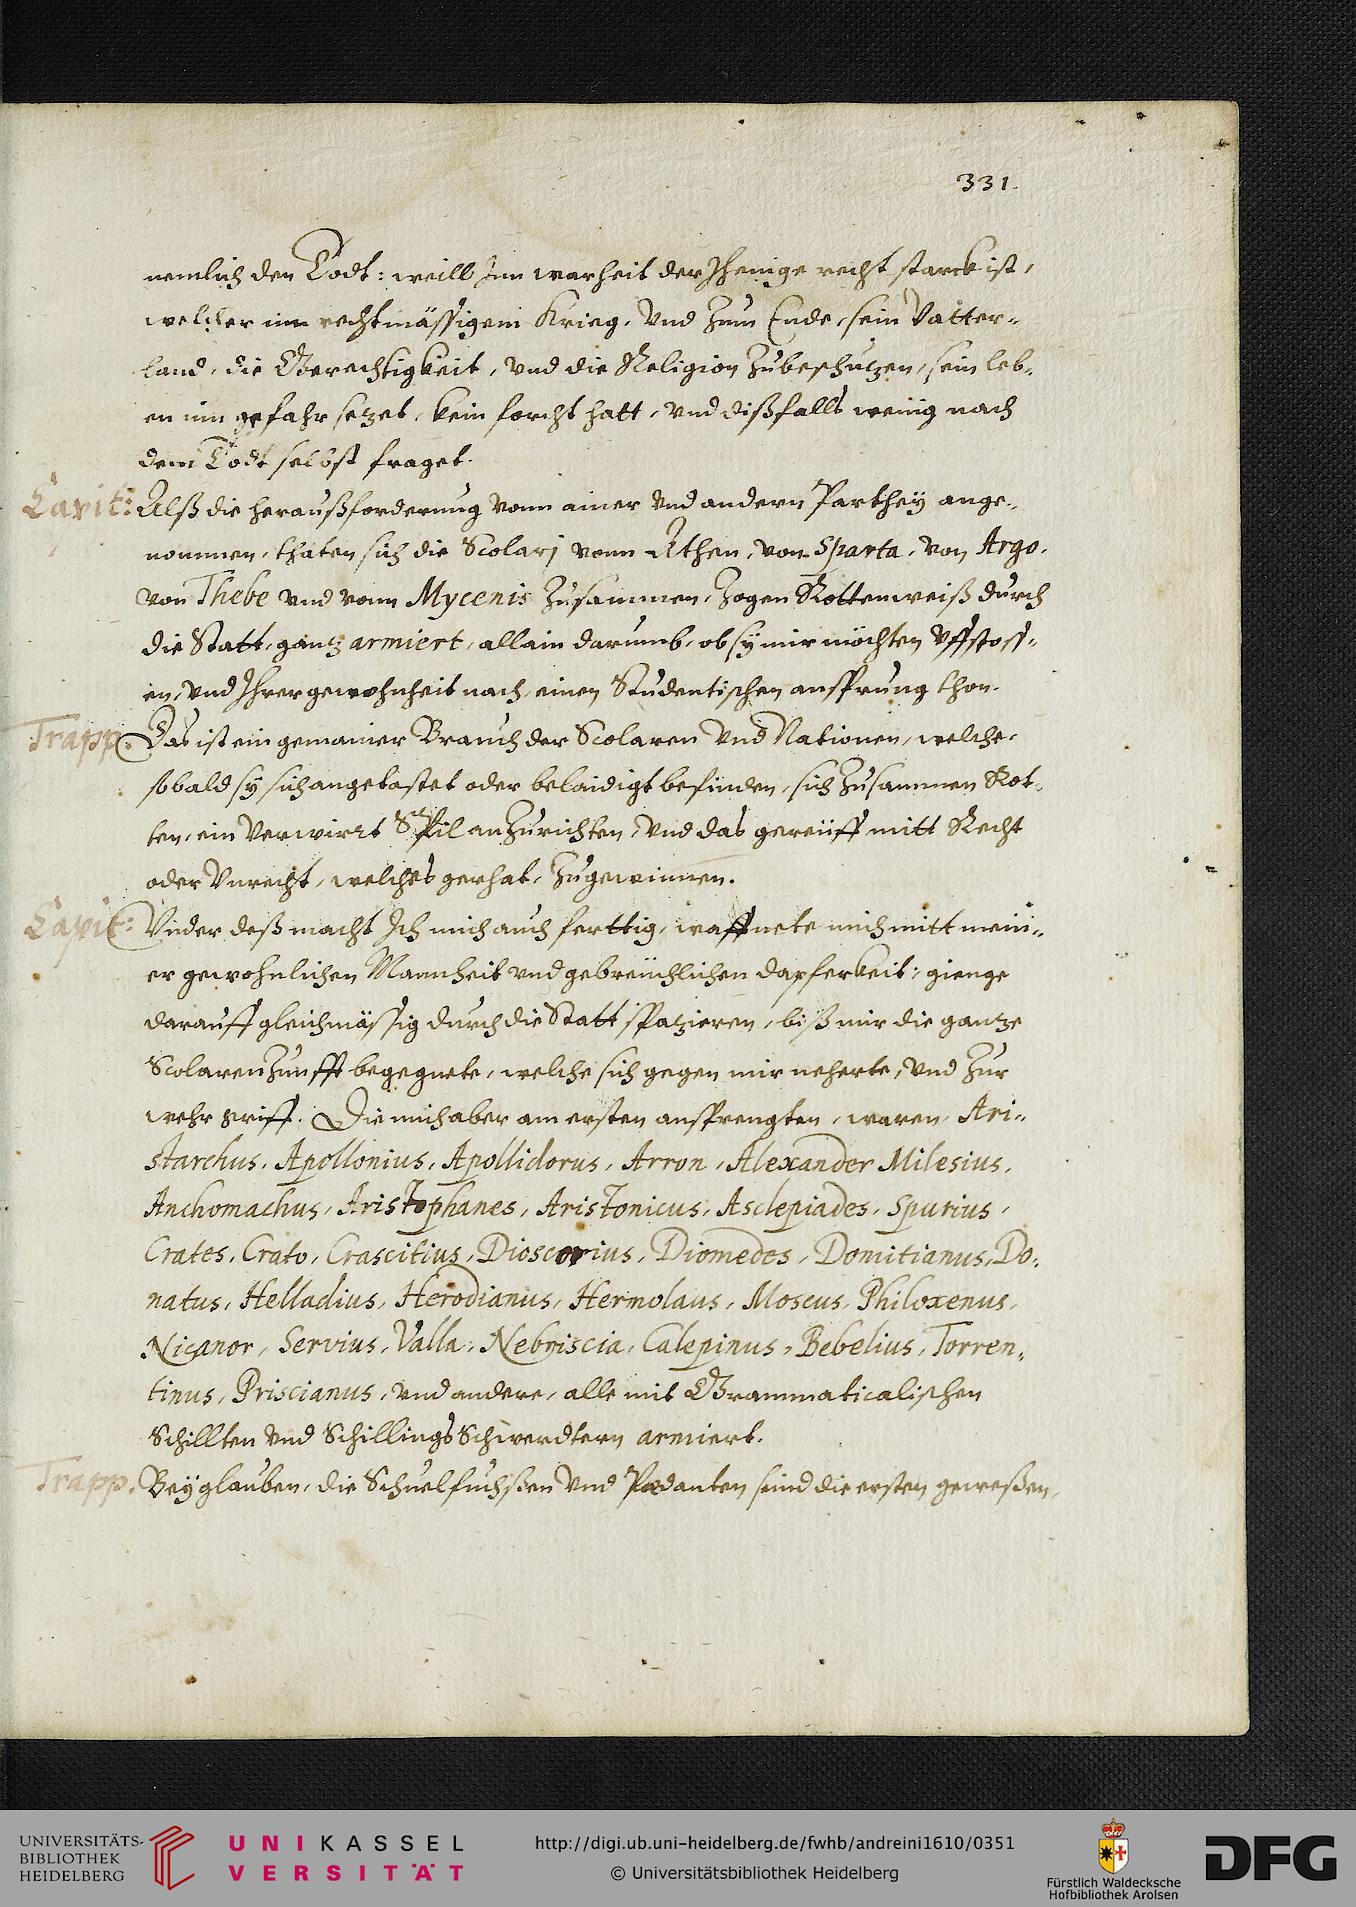 331.
nemlich den Todt: weill Inn warheit der Jhenige recht starck ist,
welcher inn rechtmässigem Krieg, vnd Zum Ende, sein Vatter-
land, die Gerechtigkeit, vnd die Religion Zubeschutzen, sein leb-
en inn gefahr setzet, kein forcht hatt, vnd dißfalls wenig nach
dem Todt selbst fraget.
Capit: Alß die heraußforderung vonn ainer vnd andern Parthey ange-
nommen, thaten sich die Scolarj vonn Athen, von Sparta, von Argo,
von Thebe vnd vonn Mycenis Zusammen, Zogen Rottenweiß durch
die Statt, gantz armiert, allain darumb, ob sy mir möchten vffstoss-
en, vnd Ihrer gewohnheit nach, einen Studentischen ansprung thon.
Trapp. Das ist ein gemainer Brauch der Scolaren vnd Nationen, welche,
sobald sy sich angetastet oder belaidigt befinden, sich Zusammen Rot-
ten, ein verwirrt Spil anZurichten, vnd das gereüff mitt Recht
oder Vnrecht, welches gerhat, Zugewinnen.
Capit: Vnder deß macht Ich mich auch ferttig, waffnete mich mitt mein-
er gewohnlichen Mannheit vnd gebreüchlichen dapferkeit, gienge
darauff gleichmässig durch die Statt spatzieren, biß mir die gantze
Scolaren Zunfft begegnete, welche sich gegen mir neherte, vnd Zur
wehr griff. Die mich aber am ersten ansprengten, waren, Ari-
starchus, Apollonius, Apollidorus, Arron, Alexander Milesius,
Anchomachus, Aristophanes, Aristonicus, Asclepiades, Spurius,
Crates, Crato, Crascitius, Dioscorius, Diomedes, Domitianus, Do-
natus, Helladius, Herodianus, Hermolaus, Moscus, Philoxenus,
Nicanor, Servius, Valla, Nebriscia, Calepinus, Bebelius, Torren-
tinus, Priscianus, vnd andere, alle mit Grammaticalischen
Schillten vnd Schillings Schwerdtern armiert.
Trapp. Bey glauben, die Schuelfuchßen vnd Pedanten sind die ersten geweßen,
UNIVERSITÄTS-
BIBLIOTHEK
HEIDELBERG
UNIKASSEL
VERSITÄT
http://digi.ub.uni-heidelberg.de/fwhb/andreini1610/0351
© Universitätsbibliothek Heidelberg
Fürstlich Waldecksche
Hofbibliothek Arolsen
DFG